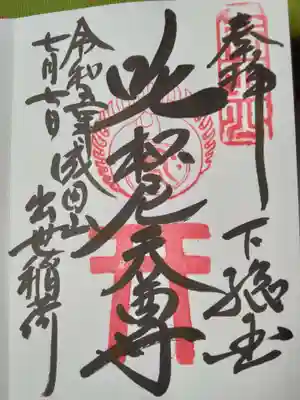 奉拝
下総国
吒枳尼天尊
成田山
出世稲荷
令和五年
七月七日